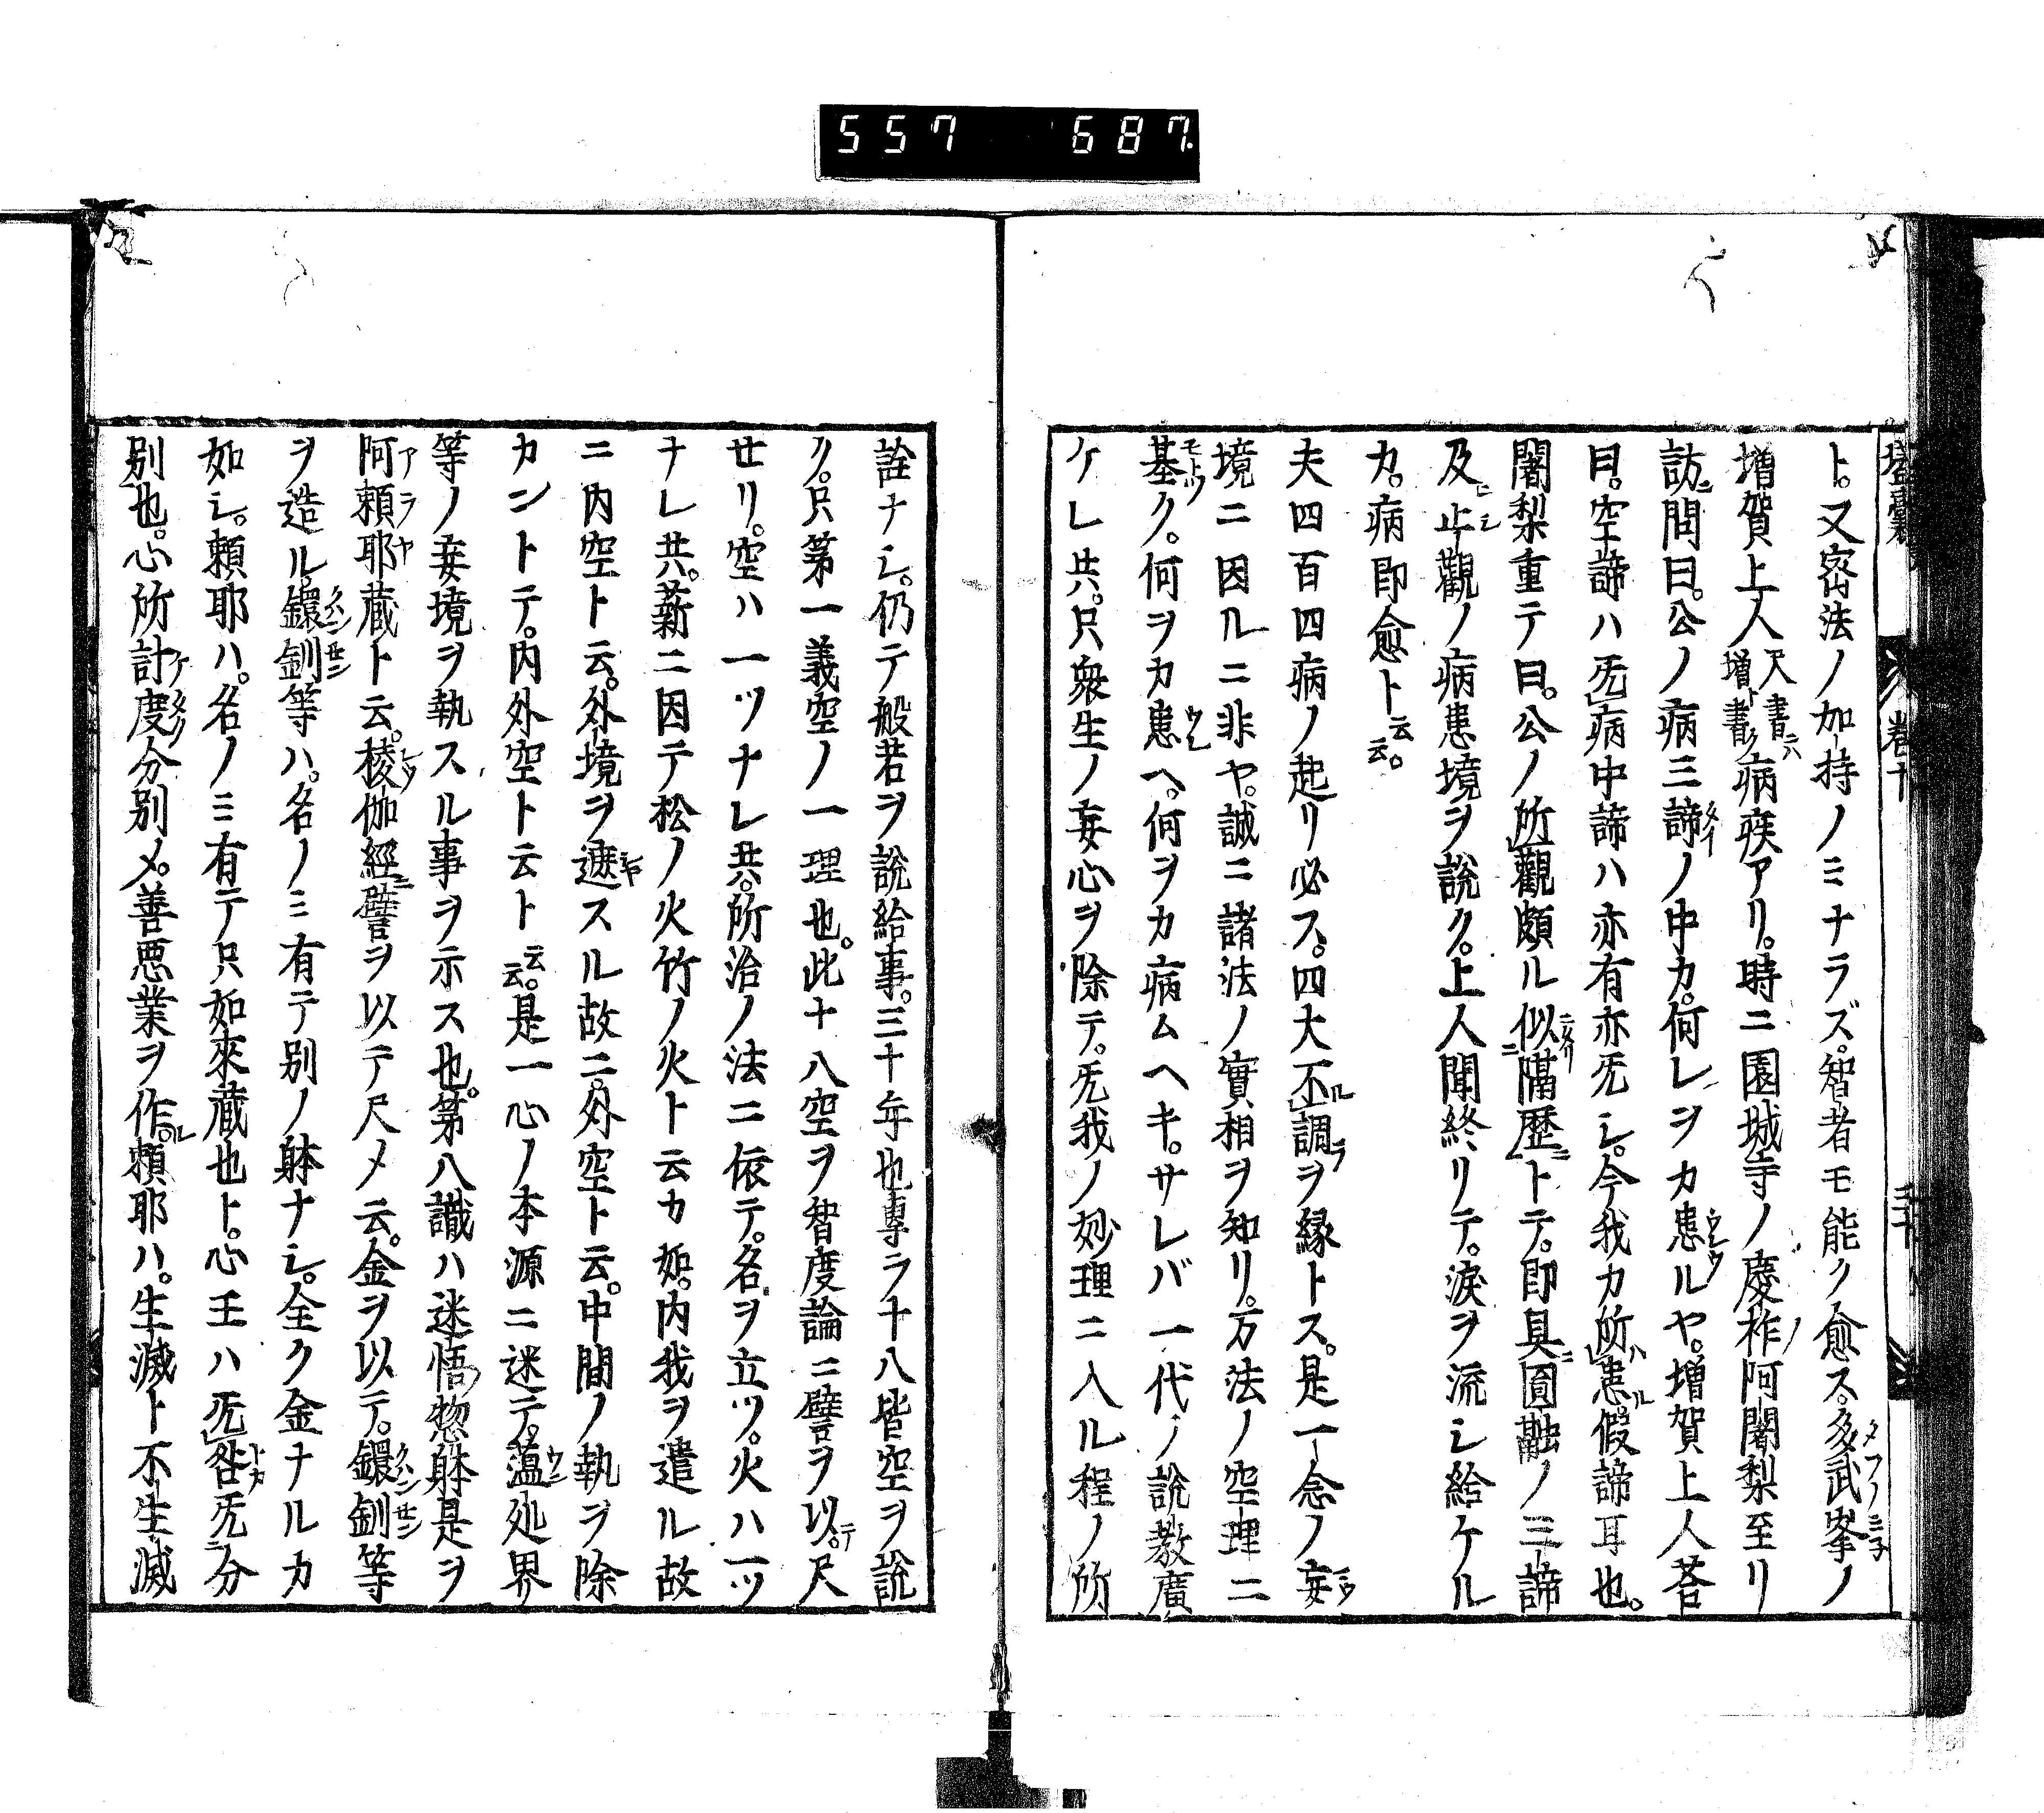 557 687.
壒囊 巻十
ト。又密法ノ加持ノミナラズ。智者モ能ク愈ス。多武峯ノ
増賀上人或書ニハ増ト書ク病疾アリ。時ニ園城寺ノ慶祚阿闍梨至リ
訪問曰。公ノ病三諦ノ中カ。何レヲカ患ルヤ。増賀上人荅
曰。空諦ハ旡病中諦ハ亦有亦旡シ。今我カ所患假諦耳也。
闍梨重テ曰。公ノ所觀頗ル似隔歴トテ。即具圓融ノ三諦
及止觀ノ病患境ヲ說ク。上人聞終リテ。淚ヲ流シ給ケル
カ。病即愈ト云云。
夫四百四病ノ起リ必ス。四大不調ヲ縁トス。是一念ノ妄
境ニ因ルニ非ヤ。誠ニ諸法ノ實相ヲ知リ。万法ノ空理ニ
基ク。何ヲカ患ヘ。何ヲカ病ムヘキ。サレバ一代ノ說教廣
ケレ共。只衆生ノ妄心ヲ除テ。旡我ノ妙理ニ入ル程ノ所
詮ナシ。仍テ般若ヲ說給事。三十年也專ラ十八皆空ヲ說
ク。只第一義空ノ一理也。此十八空ヲ智度論ニ譬ヲ以テ尺
せリ。空ハ一ツナレ共。所治ノ法ニ依テ。名ヲ立ツ。火ハ一ツ
ナレ共。薪ニ因テ松ノ火竹ノ火ト云カ如。内我ヲ遣ル故
ニ内空ト云。外境ヲ遮スル故ニ。外空ト云。中間ノ執ヲ除
カントテ。内外空ト云ト云云。是一心ノ本源ニ迷テ。蕰処界
等ノ妄境ヲ執スル事ヲ示ス也。第八識ハ迷悟惣躰是ヲ
阿頼耶蔵ト云。楞伽經ニ譬ヲ以テ尺メ云。金ヲ以テ。鐶釧等
ヲ造ル。鐶釧等ハ。名ノミ有テ別ノ躰ナシ。全ク金ナルカ
如シ。頼耶ハ。名ノミ有テ只如來蔵也ト。心王ハ旡咎旡分
別也。心所計度分別メ。善悪業ヲ作ル。頼耶ハ。生滅ト不生滅